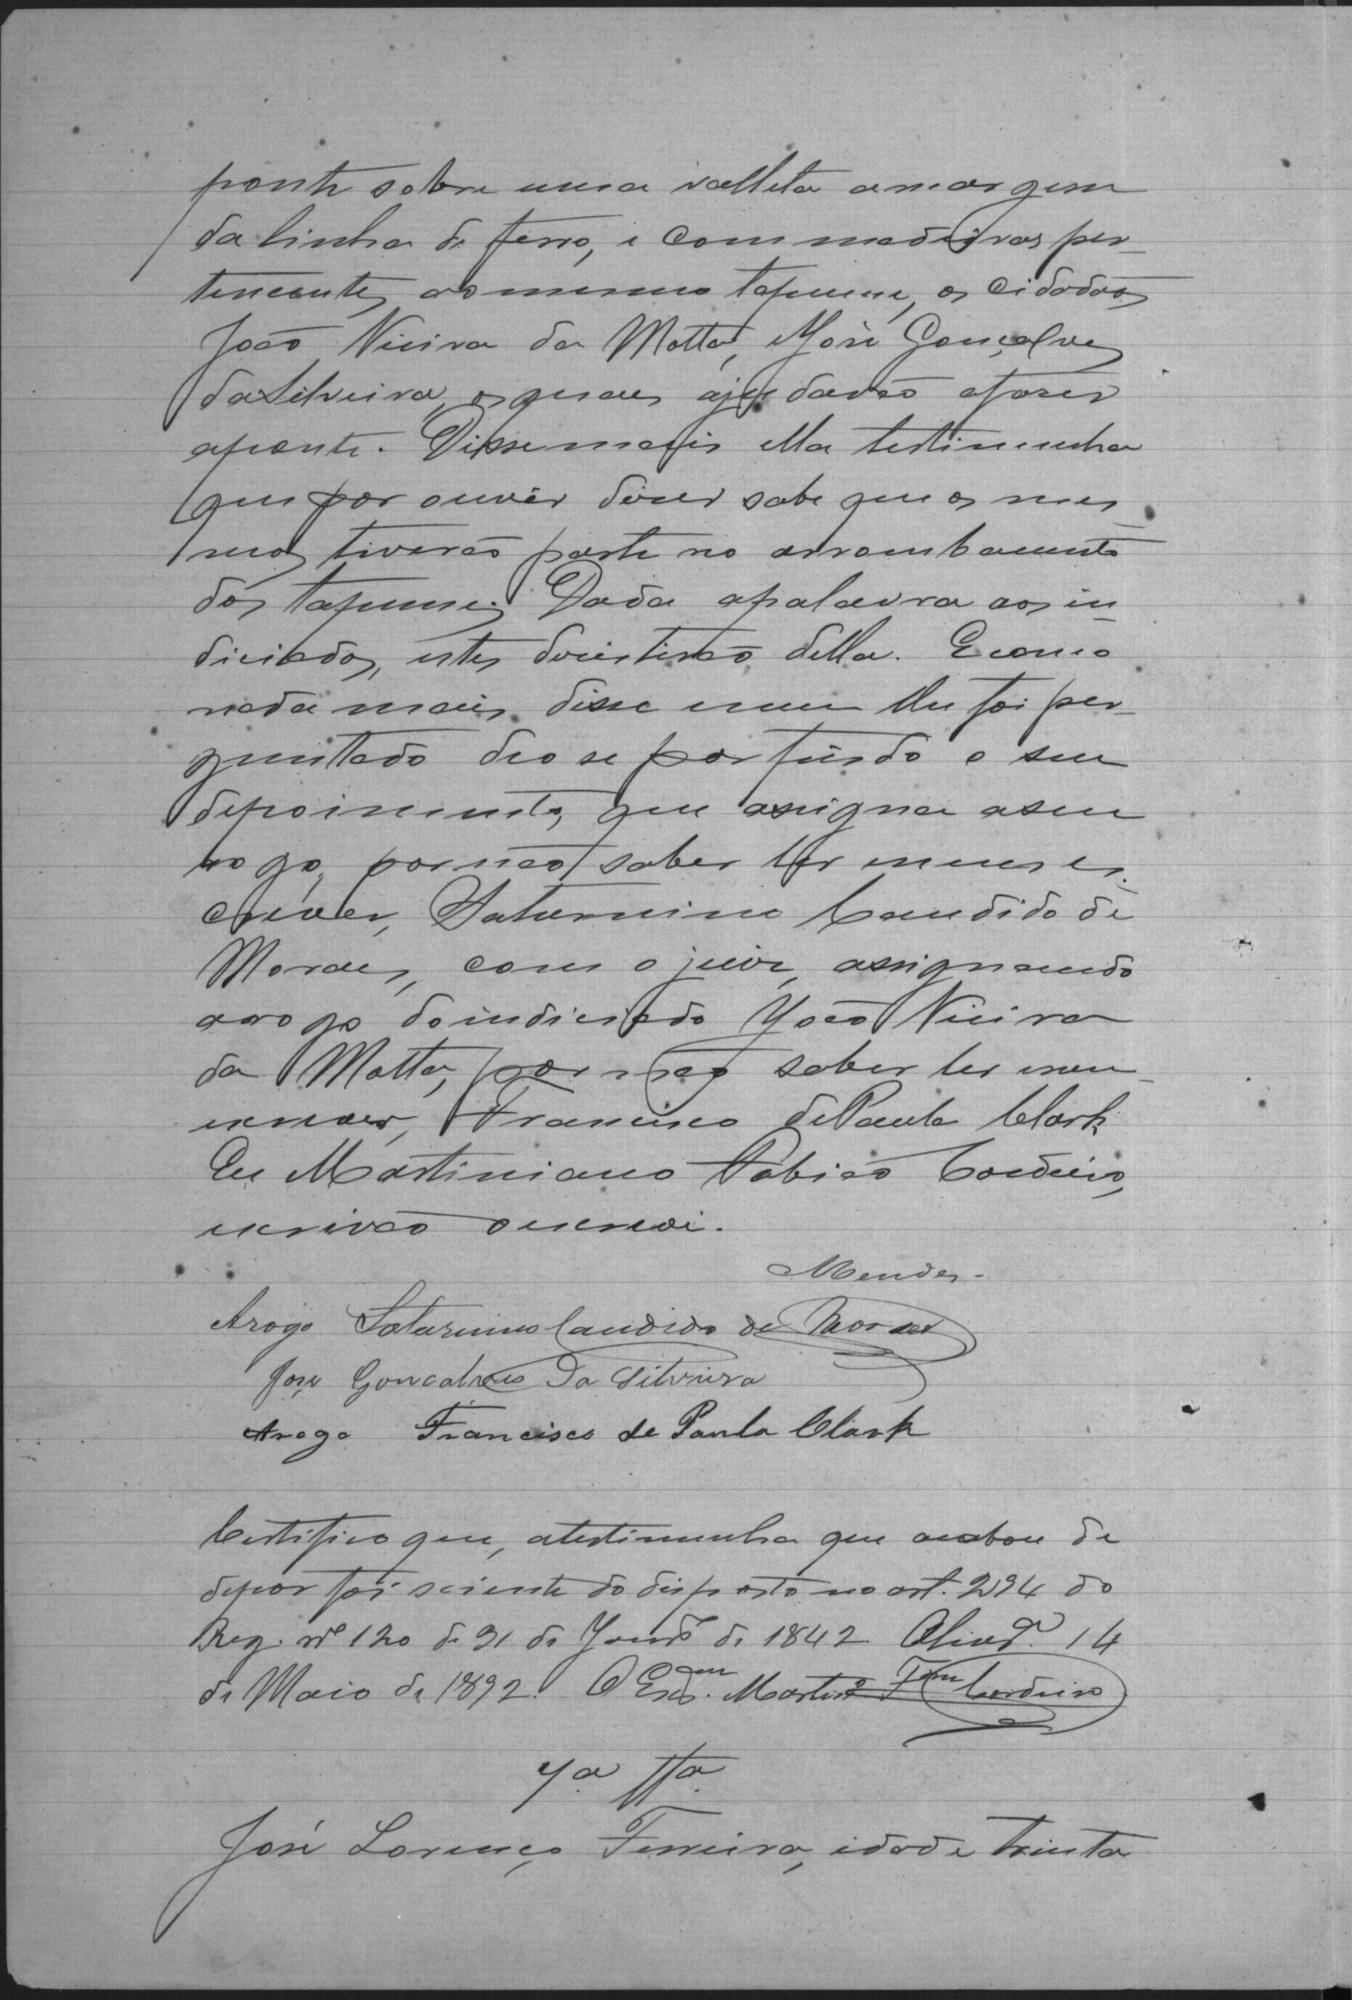 ponte sobre uma valleta a margem
da linha de ferro, e com madeiras per-
tencentes ao mesmo tapume, os cidadãos
João Vieira da Motta, José Gonçalves
da Silveira, os quaes ajudarão a fazer
a ponte. Disse mais ella testimunha
que por ouvir dizer sabe que os mes-
mos tiverão parte no arrombamento
dos tapumes. Dada a palavra aos in-
diciados, estes desistirão della. E como
nada mais disse nem lhe foi per-
guntado deo se por findo o seu
depoimento, que assigna a seu
rogo, por não saber ler nem es-
crever, Saturnino Candido de
Moraes, com o juiz, assignando
a rogo do indiciado João Vieira
da Motta, por não saber ler nem
escrever, Francisco de Paula Clark
Eu Martiniano Cordeiro,
escrivão o escrevi.
Mendes.
Arogo Saturnino Candido de Moraes
José Goncalves Da Silveira
Arogo Francisco de Paula Clark
Certifico que, a testimunha que acabou de
depor foi sciente do disposto no art. 294 do
Reg. nº 120 de 31 de Janrº de 1842. 14
de Maio de 1892. O Escm. Martinº Cordeiro
4ª ttª
José Lorenço Ferreira, idade trinta